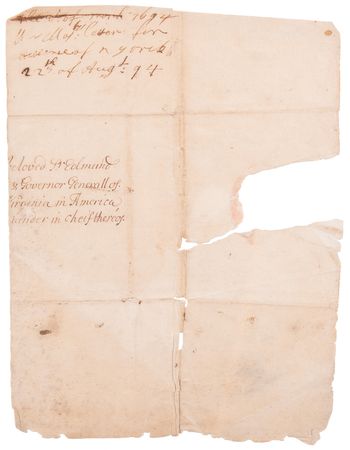 1694
Ma^tys letter for
of n yorke
22^th of Aug^t. 94
eloved S^r. Edmund
& Governor Generall of
irginia in America,
ander in cheif thereof